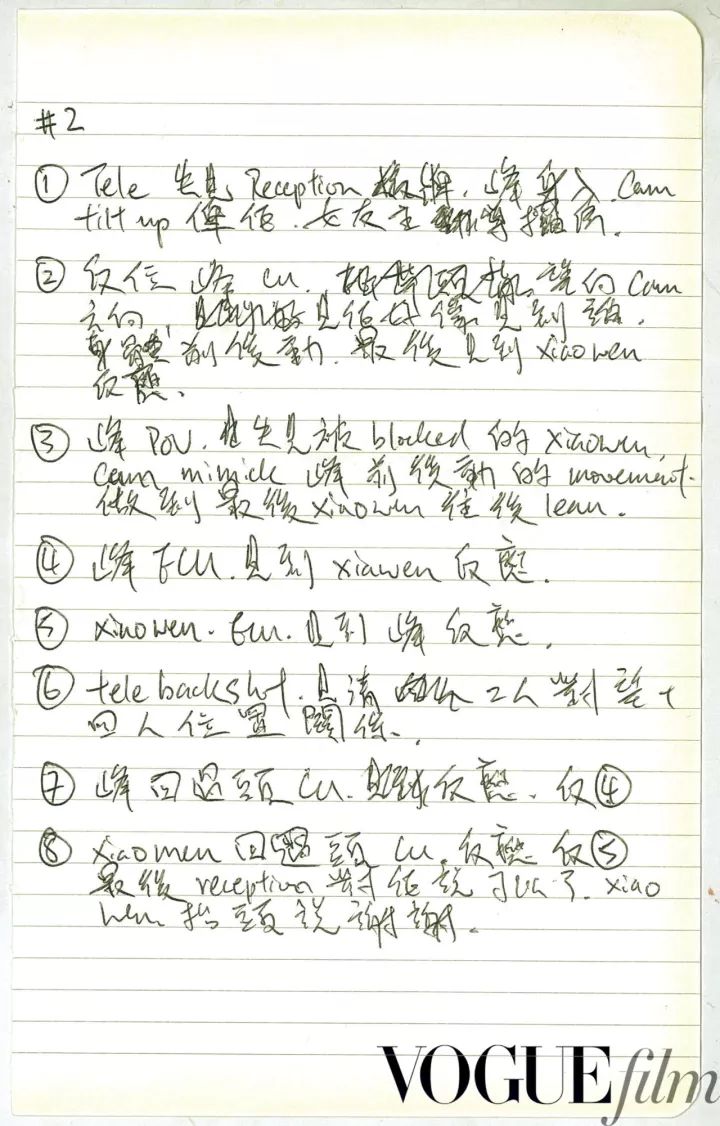 #2
① Tele 先見 Reception 牌. 峰身入. Cam
tilt up 俾佢. 女友主
② 反位 峰 CU. 頭 Cam
方向, 見佢好像見到誰.
身體前後動. 最後見到 xiaowen
反應.
③ 峰 POV. 先見被 blocked 的 xiaowen.
cam mimick 峰前後動的 movement.
做到最後 xiaowen 往後 lean.
④ 峰 ECU. 見到 xiaowen 反應.
⑤ xiaowen. ECU. 見到峰反應.
⑥ tele backshot. 見清 2人對望 +
四人位置關係.
⑦ 峰回過頭 CU. 反應. 反④
⑧ xiaowen 回過頭 CU. 反應 反⑤
最後 reception 對佢說可以了. xiao
wen 抬頭說謝謝.
VOGUE film